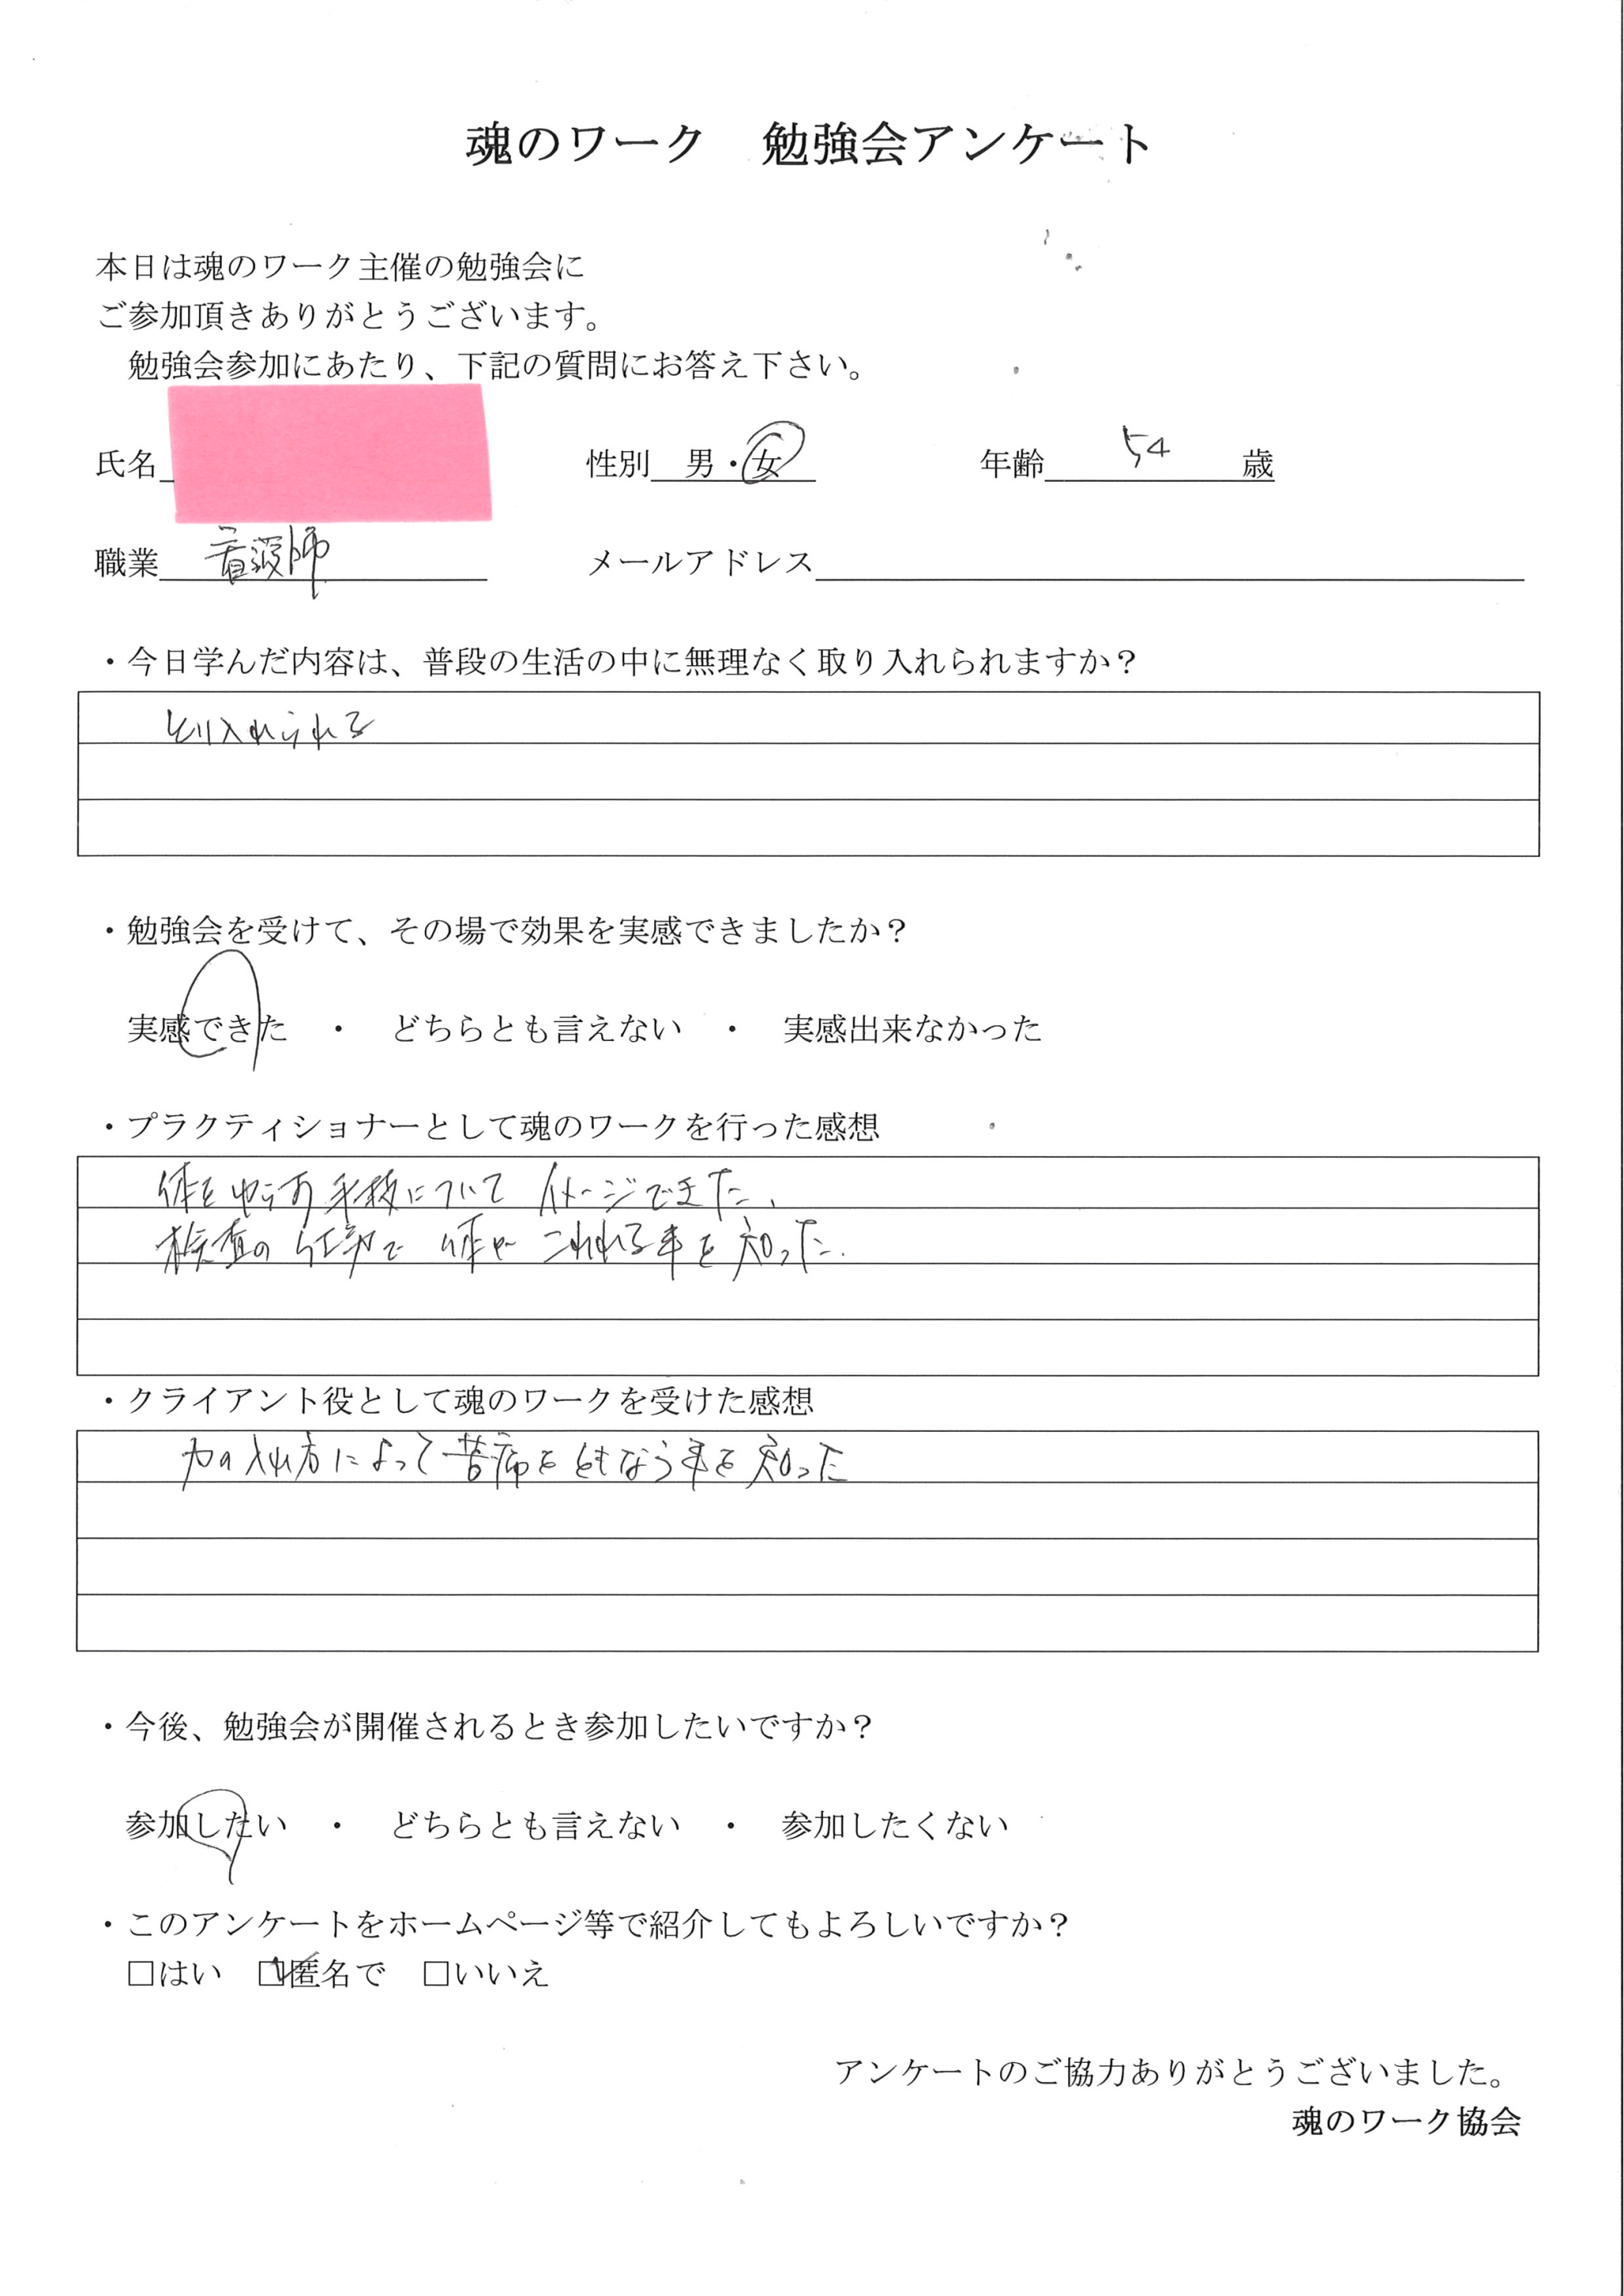 魂のワーク　勉強会アンケート
本日は魂のワーク主催の勉強会に
ご参加頂きありがとうございます。
勉強会参加にあたり、下記の質問にお答え下さい。
氏名　性別　男・女　年齢　54　歳
職業　看護師　メールアドレス
・今日学んだ内容は、普段の生活の中に無理なく取り入れられますか？
とり入れられる
・勉強会を受けて、その場で効果を実感できましたか？
実感できた　・　どちらとも言えない　・　実感出来なかった
・プラクティショナーとして魂のワークを行った感想
体をゆらす手技について イメージできた、
検査の仕事で 体が こわれる事を知った.
・クライアント役として魂のワークを受けた感想
力の入れ方によって苦痛をともなう事を知った
・今後、勉強会が開催されるとき参加したいですか？
参加したい　・　どちらとも言えない　・　参加したくない
・このアンケートをホームページ等で紹介してもよろしいですか？
□はい　☑匿名で　□いいえ
アンケートのご協力ありがとうございました。
魂のワーク協会